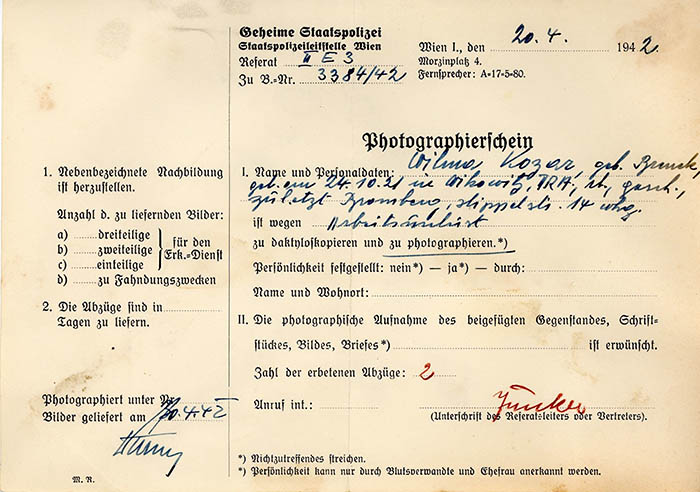 Geheime Staatspolizei
Staatspolizeileitstelle Wien
Referat II E 3
Zu B.=Nr. 3384/42
Wien I., den 20. 4. 1942
Morzinplatz 4.
Fernsprecher: A=17=5=80.
Photographierschein
1. Nebenbezeichnete Nachbildung
ist herzustellen.
Anzahl d. zu liefernden Bilder:
a) dreiteilige
b) zweiteilige
c) einteilige
für den
Erk.=Dienst
d) zu Fahndungszwecken
2. Die Abzüge sind in
Tagen zu liefern.
Photographiert unter Nr.
Bilder geliefert am 20.4.42
M. R.
I. Name und Personaldaten: Wilma Kozar, geb.
geb. am 24.10.21 in rk., gesch.,
zuletzt Bromberg, 14 whg.
ist wegen Arbeitsunlust
zu daktyloskopieren und zu photographieren.*)
Persönlichkeit festgestellt: nein*) — ja*) — durch:
Name und Wohnort:
II. Die photographische Aufnahme des beigefügten Gegenstandes, Schrift-
stückes, Bildes, Briefes*) ist erwünscht.
Zahl der erbetenen Abzüge: 2
Anruf int.:
(Unterschrift des Referatsleiters oder Vertreters).
*) Nichtzutreffendes streichen.
*) Persönlichkeit kann nur durch Blutsverwandte und Ehefrau anerkannt werden.